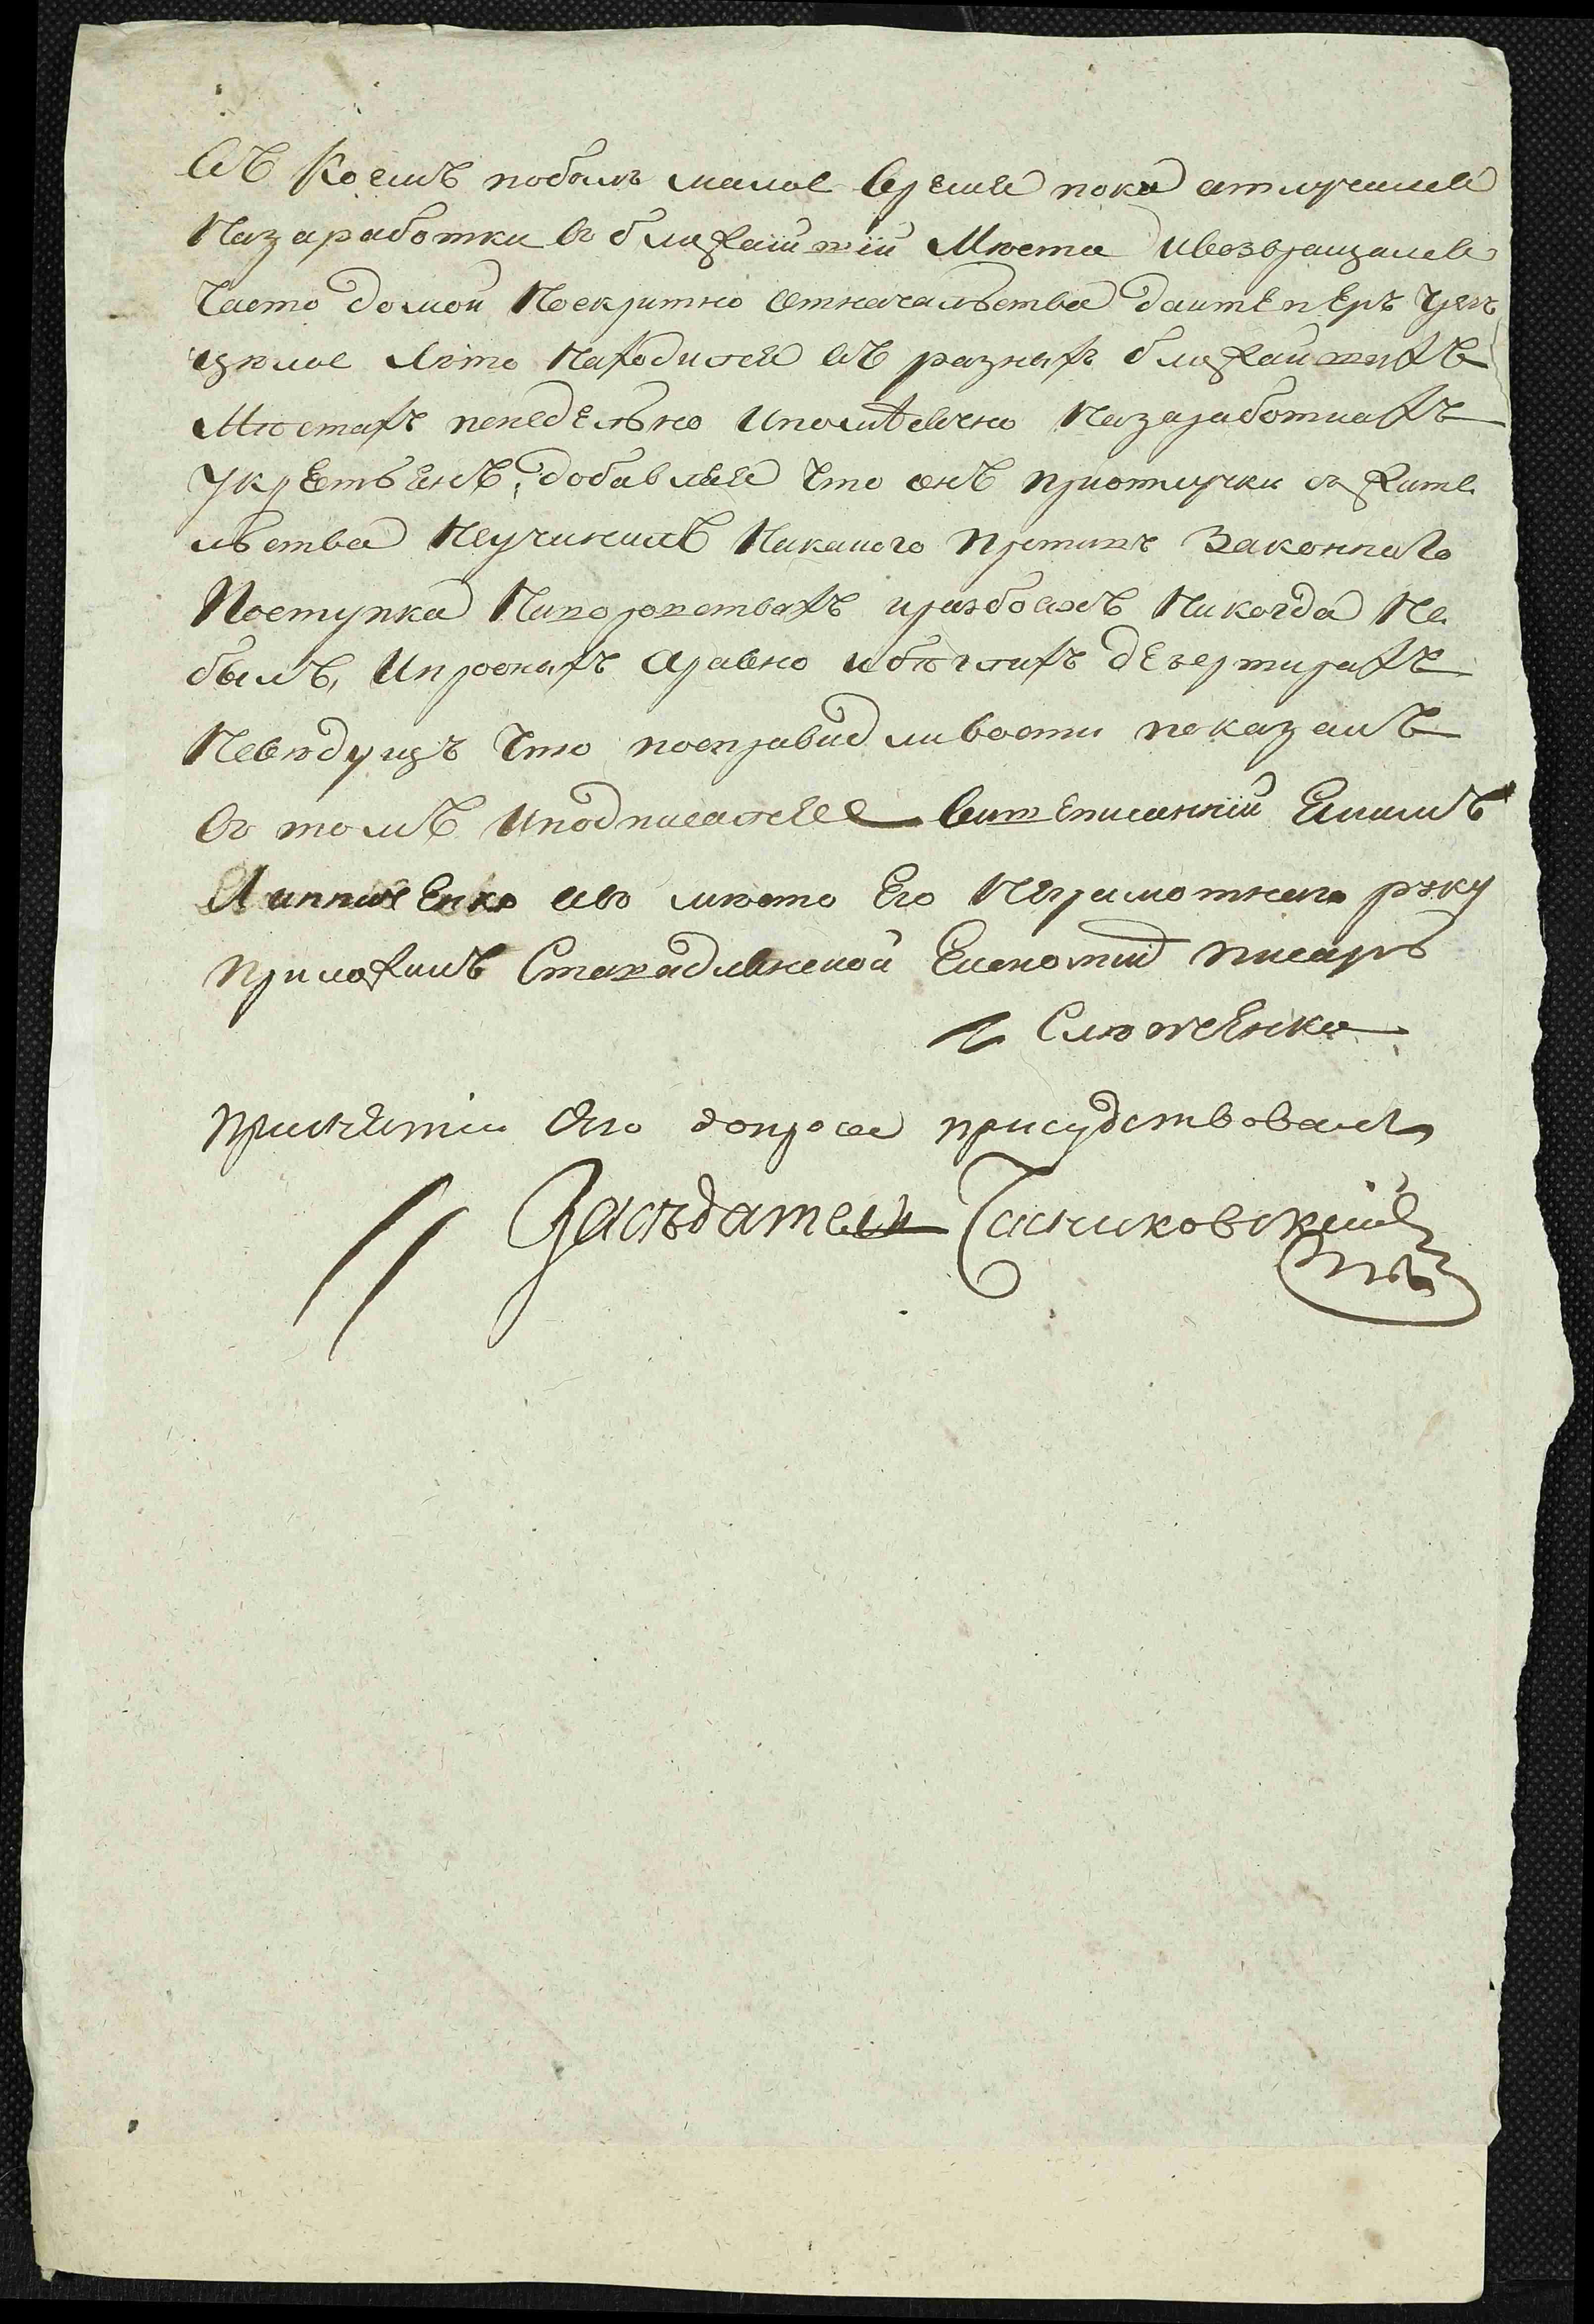 въ коемъ побылъ малое время пока отлучился
Назаработки въ ближайшїй Мѣста ивозвращался
часто домой Поскритно отначальства даитеперъ чрезъ
цѣлое лѣто Находился въ разныхъ ближайшихъ
Мѣстахъ понедельно ипомѣсячно Назаработкахъ
укрестьянъ, добавляя что онъ приотлучки съ жите
льства Неучинилъ Никакого Противъ Законнаго
Поступка Наворовствахъ иразбояхъ Никогда Не
былъ, Ипротчихъ аравно ибѣглихъ дезертирахъ
Невѣдущъ что посправидливости показалъ
въ томъ Иподписался вишеписаннїй
а въ мѣсто его Неграмотнаго руку
приложилъ Економїи писаръ
Принятїи сего допроса присудствовалъ
Засѣдатель